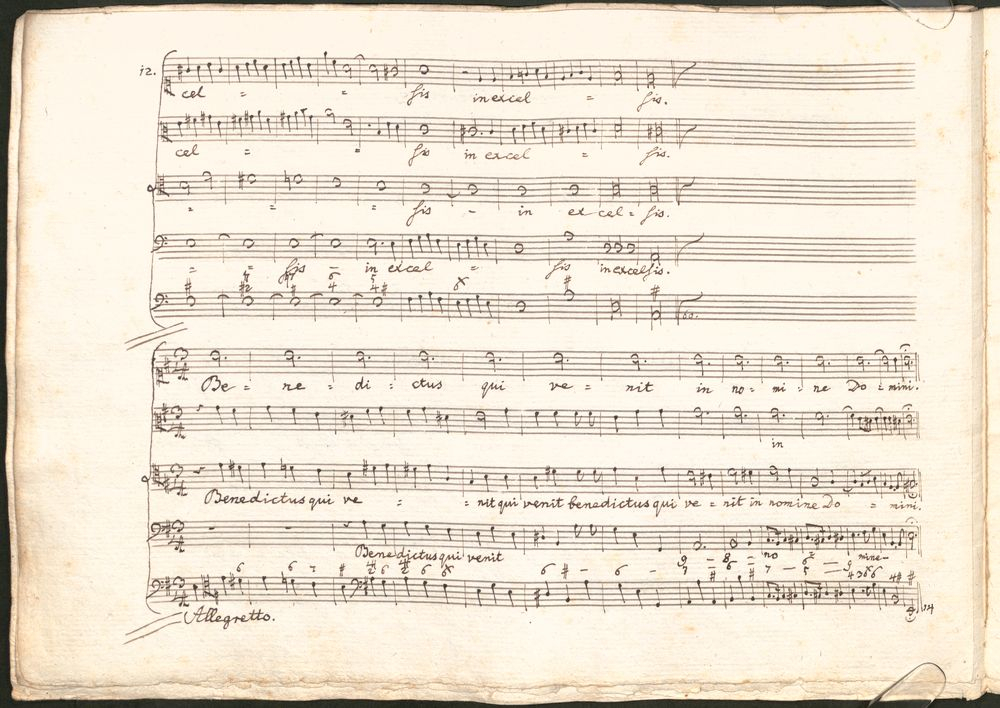 12.
cel = = sis in excel = sis.
cel = = sis in excel = sis.
= = = sis - in excel = sis.
= = sis - in excel = sis in excelsis.
60.
Be = ne = di = ctus qui ve = nit in no = mi = ne Do = mini.
in
Benedictus qui ve = = nit qui venit benedictus qui ve = nit in nomine Do = mini.
Benedictus qui venit no mine
Allegretto.